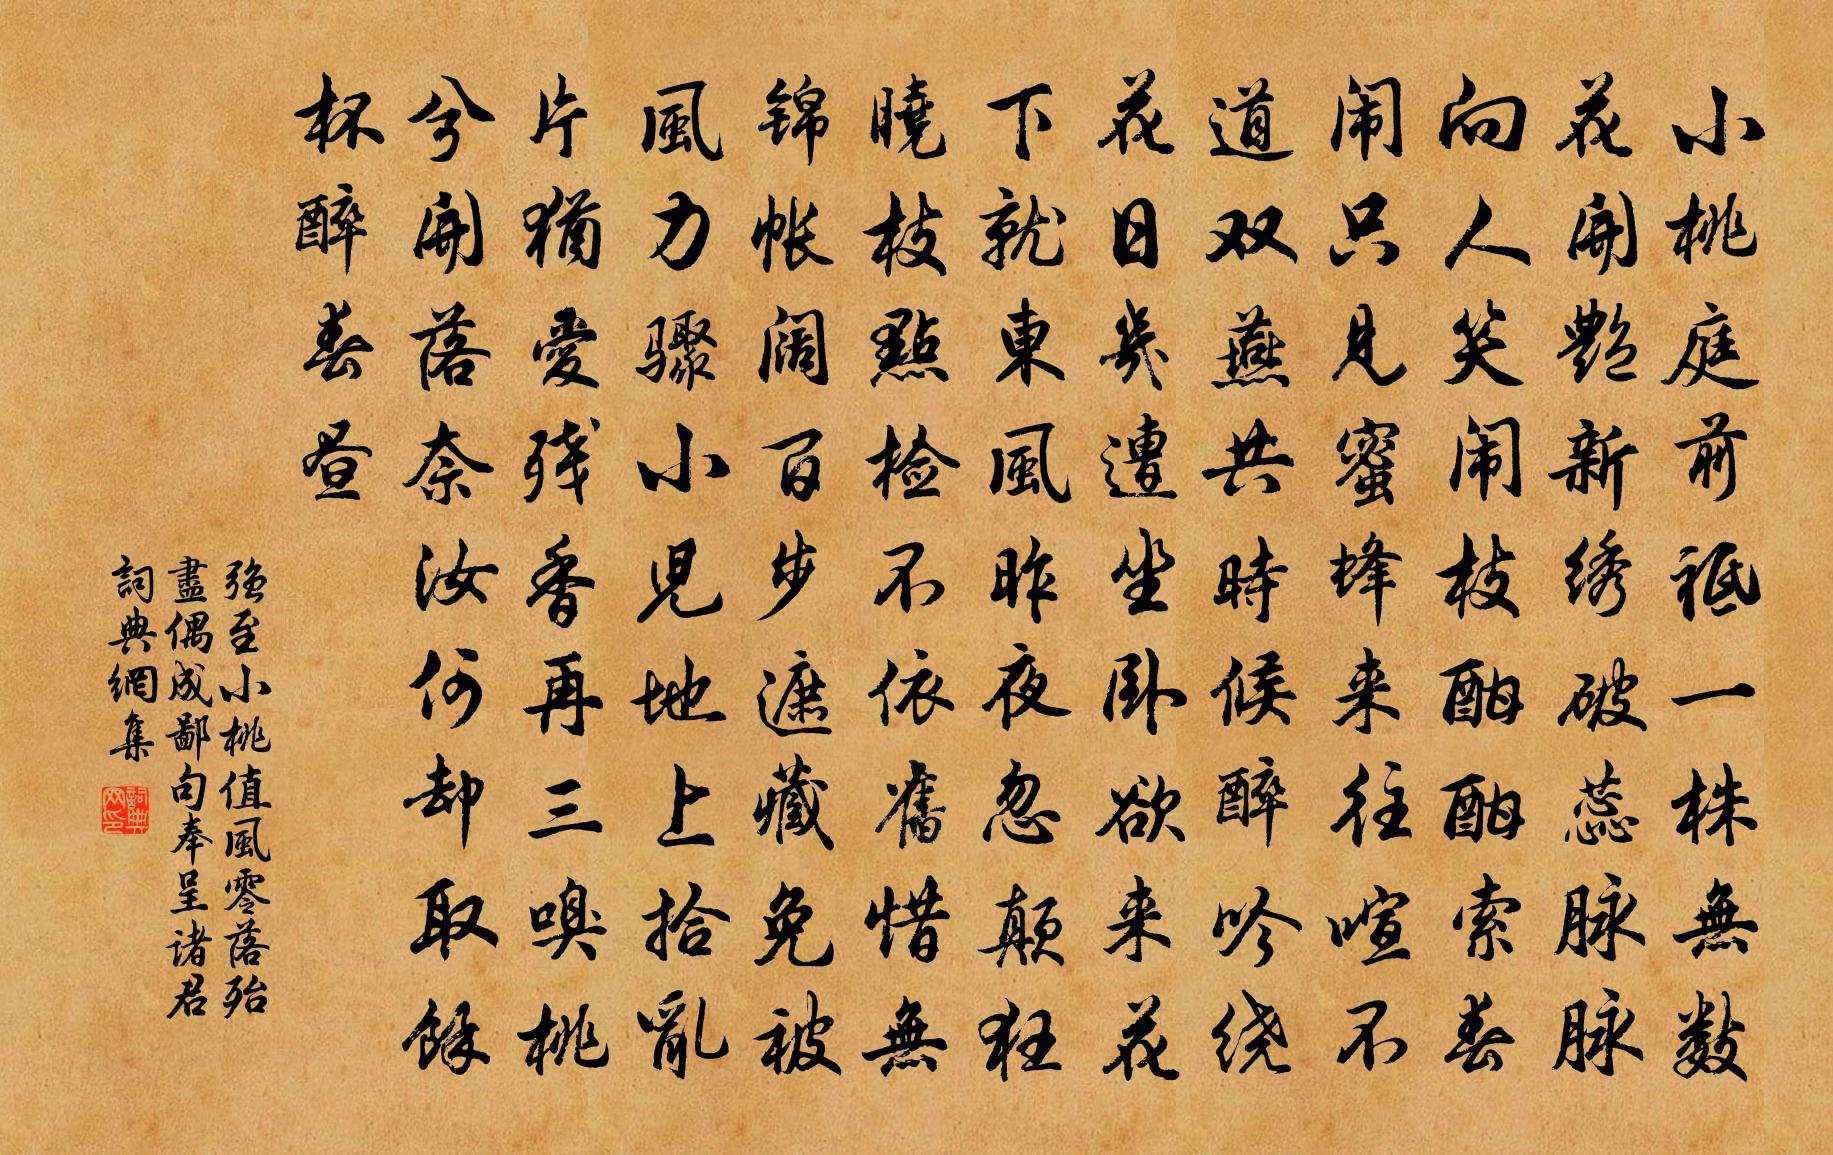 小桃庭前祗一株無数
花開艷新绣破蕊脉脉
向人笑闹枝酣酣索春
闹只見蜜蜂来往喧不
道双燕共時候醉吟绕
花日幾遭坐卧欲来花
下就東風昨夜忽颠狂
曉枝點檢不依舊惜無
锦帐阔百步遮藏免被
風力骤小兒地上拾亂
片猶愛残香再三嗅桃
兮開落奈汝何却取餘
杯醉春昼
强至小桃值風零落殆
盡偶成鄙句奉呈诸君
詞典網集
詞典网印